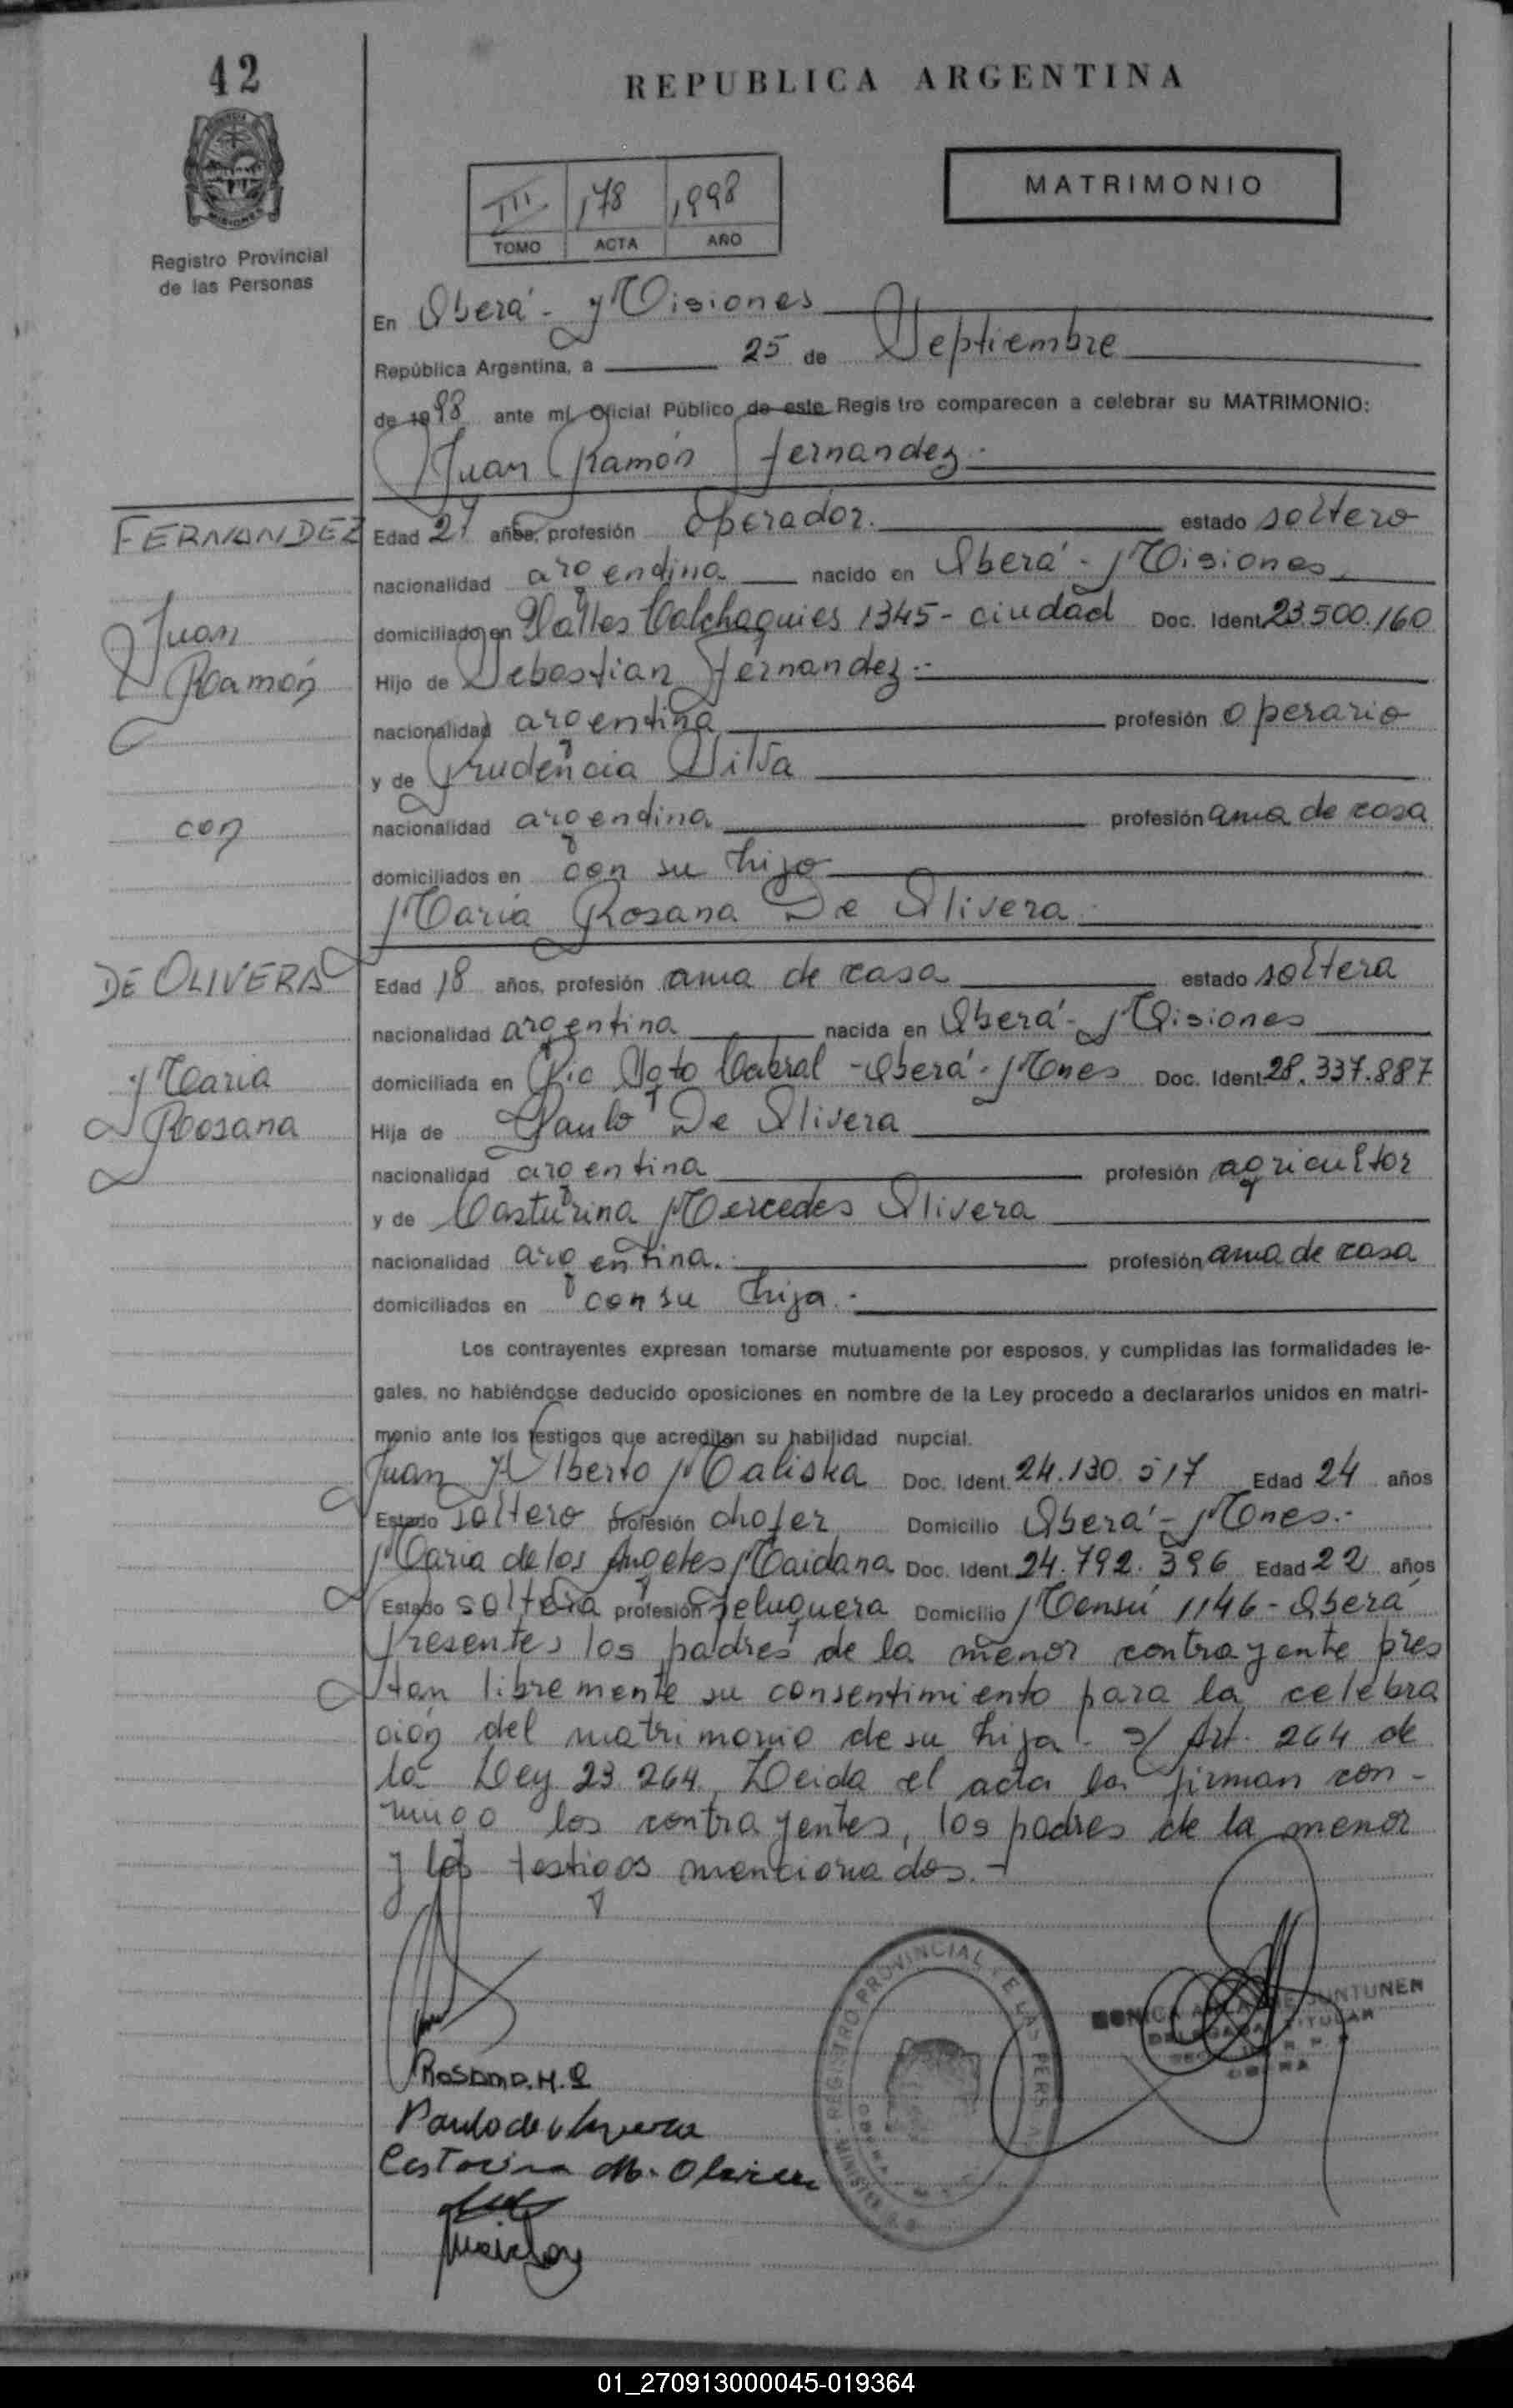 42
REPUBLICA ARGENTINA
MATRIMONIO
III 178 1998
TOMO ACTA AÑO
Registro Provincial
de las Personas
En Oberá - Misiones
República Argentina, a 25 de Septiembre
de 1998 ante mí, Oficial Público de este Registro comparecen a celebrar su MATRIMONIO:
Juan Ramón Fernandez.-
FERNANDEZ
Juan
Ramón
con
DE OLIVERA
Maria
Rosana
Edad años, profesión operador. estado soltero
nacionalidad argentina nacido en Oberá - Misiones
domiciliado en Valles Calchaquies 1345 - ciudad Doc. Ident 23.500.160
Hijo de Sebastian Fernandez.-
nacionalidad argentina profesión operario
y de Prudencia Silva
nacionalidad argentina profesión ama de casa
domiciliados en con su hijo
Maria Rosana De Olivera
Edad 18 años, profesión ama de casa estado soltera
nacionalidad argentina nacida en Oberá - Misiones
domiciliada en Pio Sgto Cabral - Oberá - Mnes Doc. Ident 28.337.887
Hija de Paulo De Olivera
nacionalidad argentina profesión agricultor
y de Casturina Mercedes Olivera
nacionalidad argentina. profesión ama de casa
domiciliados en con su hija.-
Los contrayentes expresan tomarse mutuamente por esposos, y cumplidas las formalidades le-
gales, no habiéndose deducido oposiciones en nombre de la Ley procedo a declararlos unidos en matri-
monio ante los testigos que acreditan su habilidad nupcial.
Juan Alberto Maliska Doc. Ident. 24.130.517 Edad 24 años
Estado soltero profesión chofer Domicilio Oberá - Mnes.-
Maria de los Angeles Maidana Doc. Ident. 24.792.396 Edad 22 años
Estado soltera profesión peluquera Domicilio Mensú 1146 - Oberá
Presentes los padres de la menor contrayente pres
tan libremente su consentimiento para la celebra
ción del matrimonio de su hija - s/ Art. 264 de
la Ley 23.264. Leida el acta la firman con-
migo los contrayentes, los padres de la menor
y los testigos mencionados.-
REGISTRO PROVINCIAL DE LAS PERS
JUNTUNEN
DELEGADA TITULAR
OBERA
Rosana.M.
Paulo de olivera
Casturina M. Olivera
01_270913000045-019364